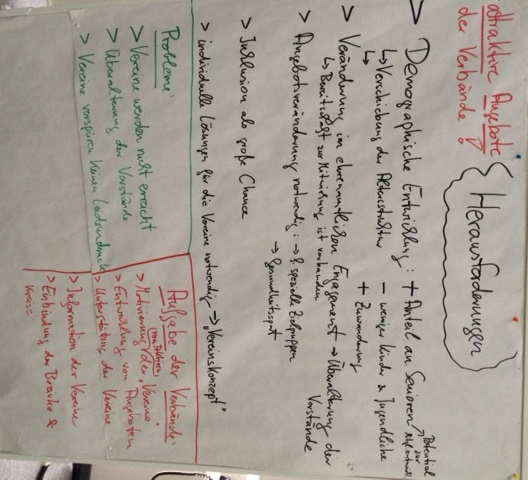 attraktive Angebote
der Verbände?
Herausforderungen
> Demographische Entwicklung: + Anteil an Senioren
Potential
↳ Verschiebung der Altersstruktur - weniger Kinder & Jugendliche
+ Zuwanderung
> Veränderung im ehrenamtlichen Engagement → Überalterung der
Vorstände
↳ Bereitschaft zur Mitwirkung ist vorhanden
> Angebotsveränderung notwendig: → f. spezielle Zielgruppen
→ Gesundheitssport
> Inklusion als große Chance
> individuelle Lösungen für die Vereine notwendig → "Vereinskonzept"
Probleme:
> Vereine werden nicht erreicht
> Überalterung der Vorstände
> Vereine verspüren keinen Leidensdruck
Aufgabe der Verbände:
> Motivierung der Vereine
> Entwicklung von Angeboten
> Unterstützung der Vereine
> Information der Vereine
> Einbindung der Bezirke &
Kreise